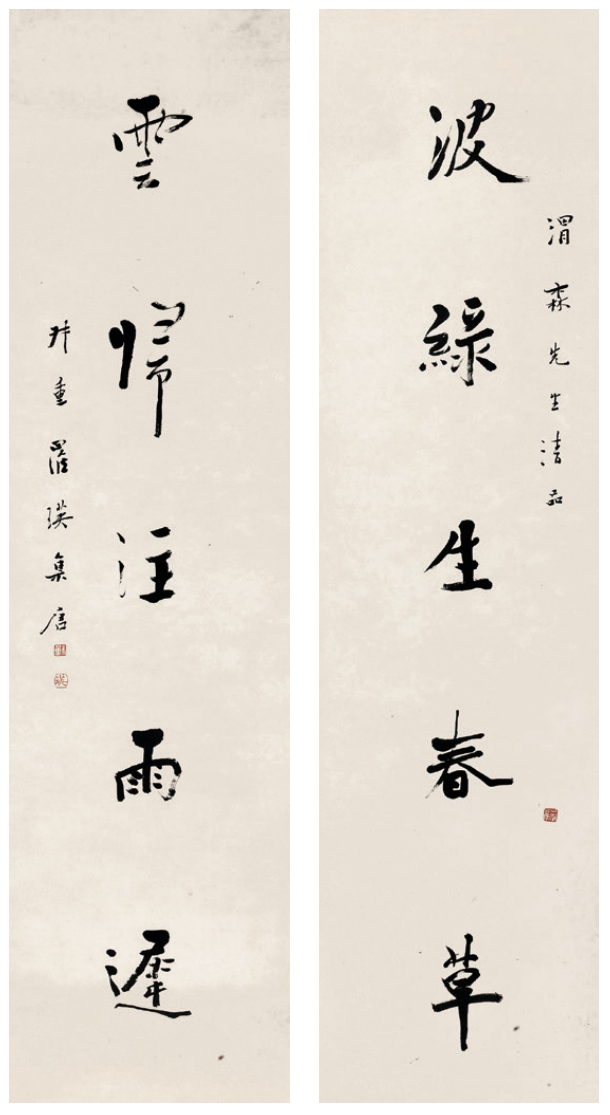 渭森先生清品
波綠生春草
雲歸注雨遲
重羅瑛集唐